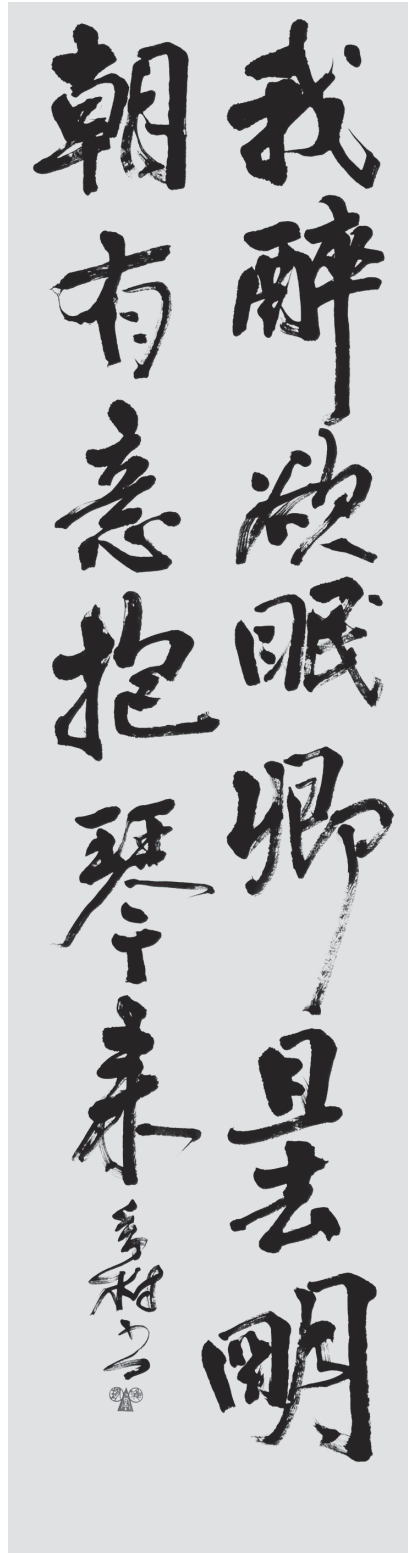 我醉欲眠卿且去明
朝有意抱琴来